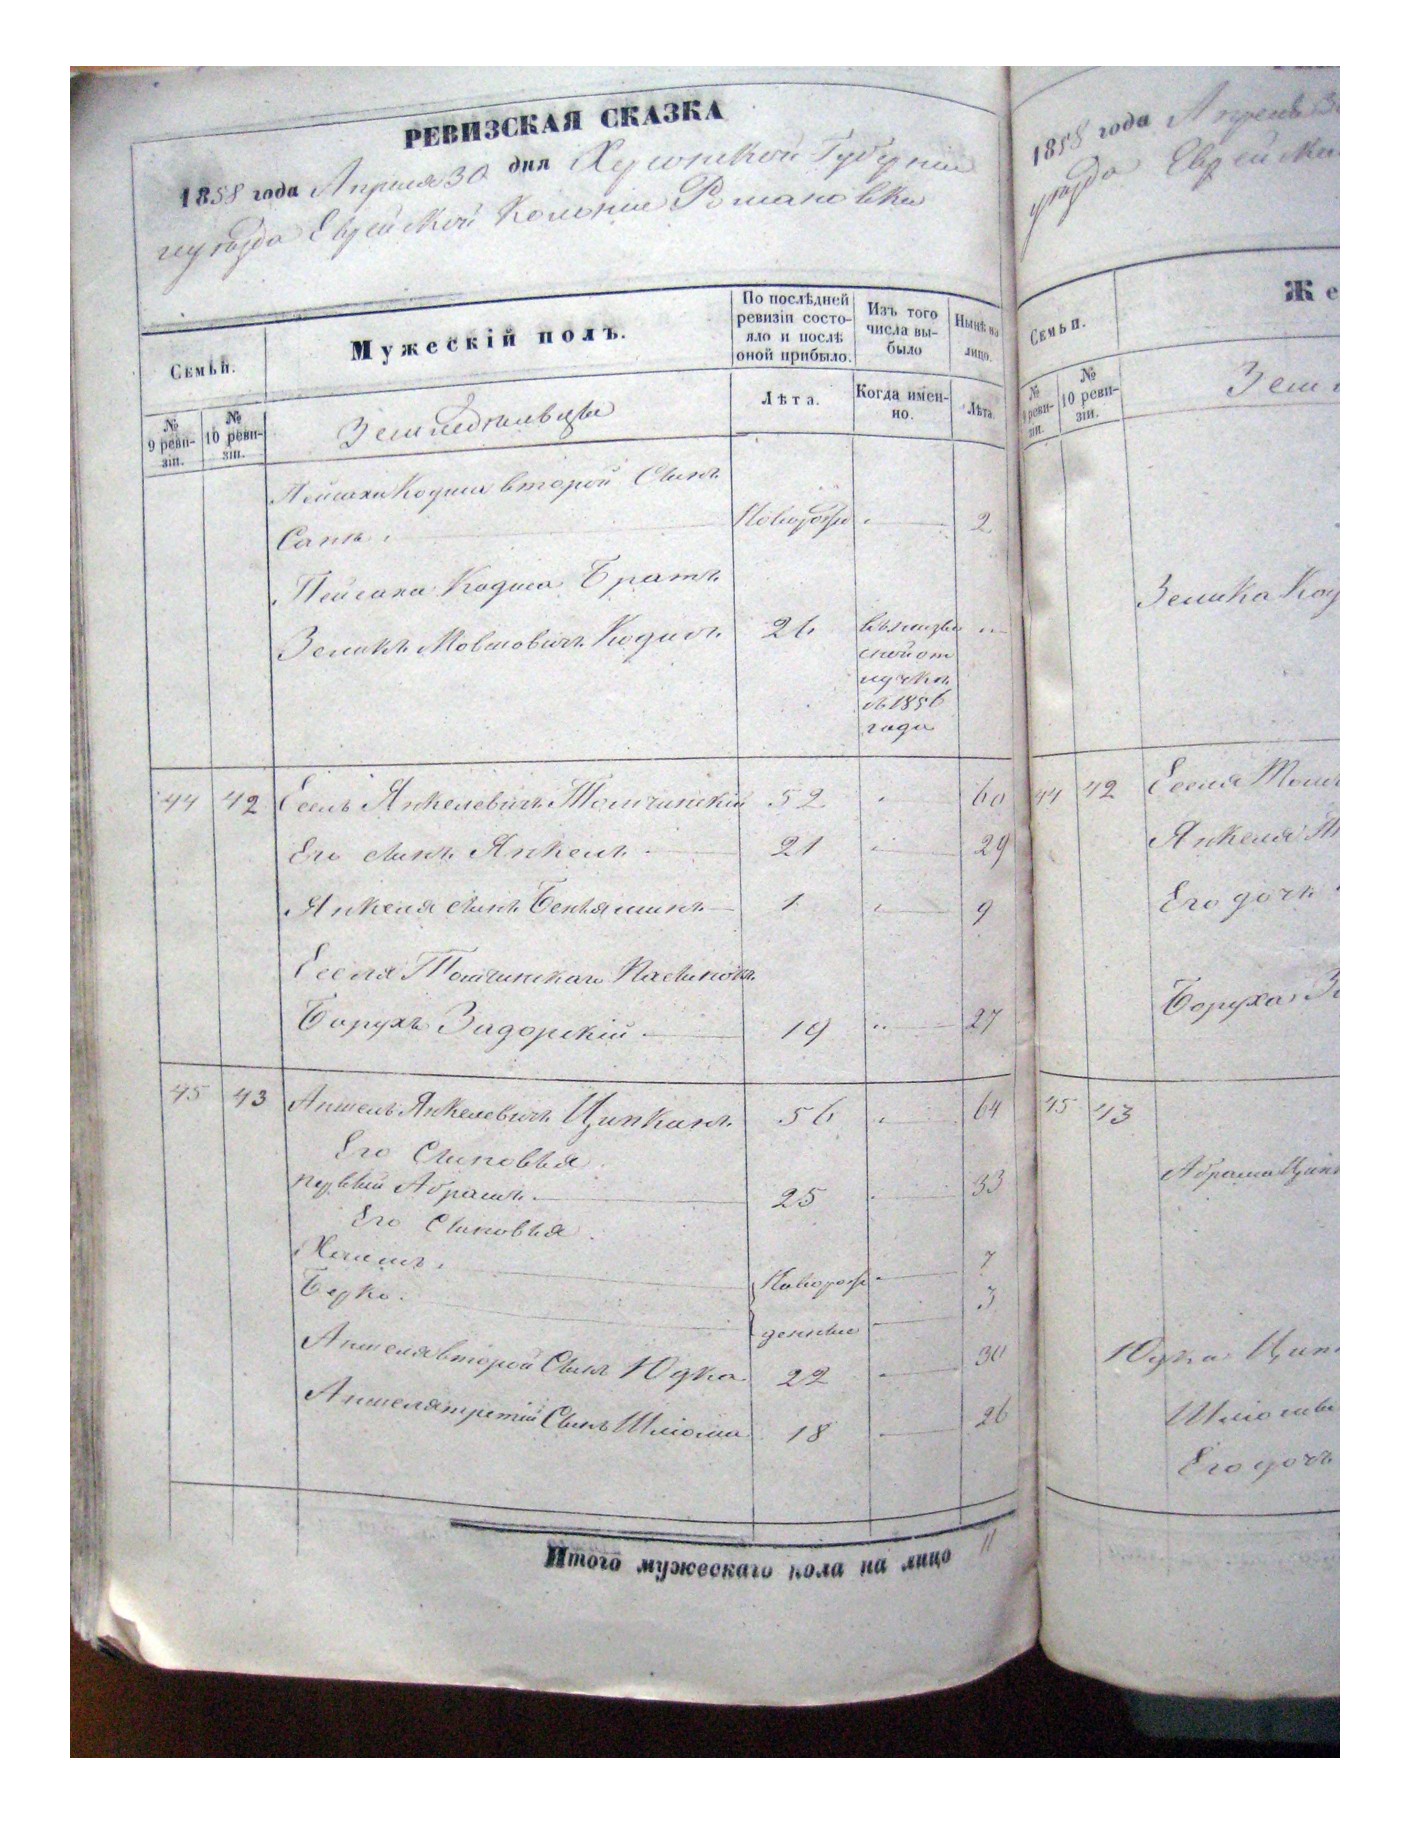 РЕВИЗСКАЯ СКАЗКА
1858 года Апреля 30 дня Херсонской Губерніи
уезда Еврейской Колоніи Романовки
Семьи.
Мужескій полъ.
По послѣдней ревизіи состояло и послѣ оной прибыло.
Изъ того числа выбыло
Нынѣ на лицо.
№ 9 ревизіи.
№ 10 ревизіи.
Земледѣльцы
Лѣта.
Когда именно.
Лѣта.
Пейсаха Кодиша второй Сынъ
Сапъ. Новорожд 2
Пейсаха Кодиша Братъ
Зеликъ Мовшовичъ Кодишъ 26
отлучкѣ
съ 1856
года
44 42 Есель Янкелевичъ Томчинскій 52 60
Его сынъ Янкель 21 29
Янкеля сынъ Беньяминъ 1 9
Еселя Томчинскаго Пасынокъ
Борухъ Задорскій 19 27
45 43 Аншель Янкелевичъ Ципкинъ 56 64
Его Сыновья
первый Абрамъ 25 33
Его Сыновья
7
Берко. 3
Новорож
денные
Аншеля второй Сынъ Юдка 22 30
Аншеля третій Сынъ Шліома 18 26
Итого мужескаго пола на лицо 11
1858 года Апреля 30
уезда Еврейской
Семьи.
Же
№ 9 ревизіи.
№ 10 ревизіи.
Земл
Зелика Код
44 42 Еселя Томч
Янкеля
Его дочь
Боруха За
45 43
Абрама Ципк
Юдка Ципк
Шліомы
Его дочь